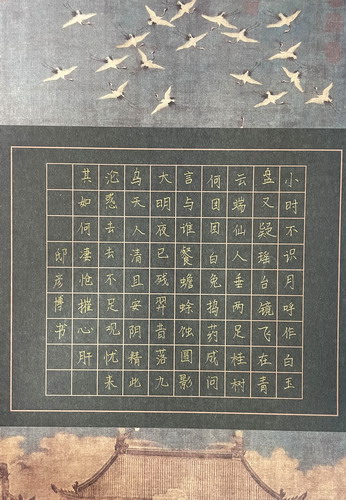 小时不识月呼作白玉
盘又疑瑶台镜飞在青
云端仙人垂两足桂树
何团团白兔捣药成问
言与谁餐蟾蜍蚀圆影
大明夜已残羿昔落九
乌天人清且安阴精此
沦惑去去不足观忧来
其如何凄怆摧心肝
邸彦博书